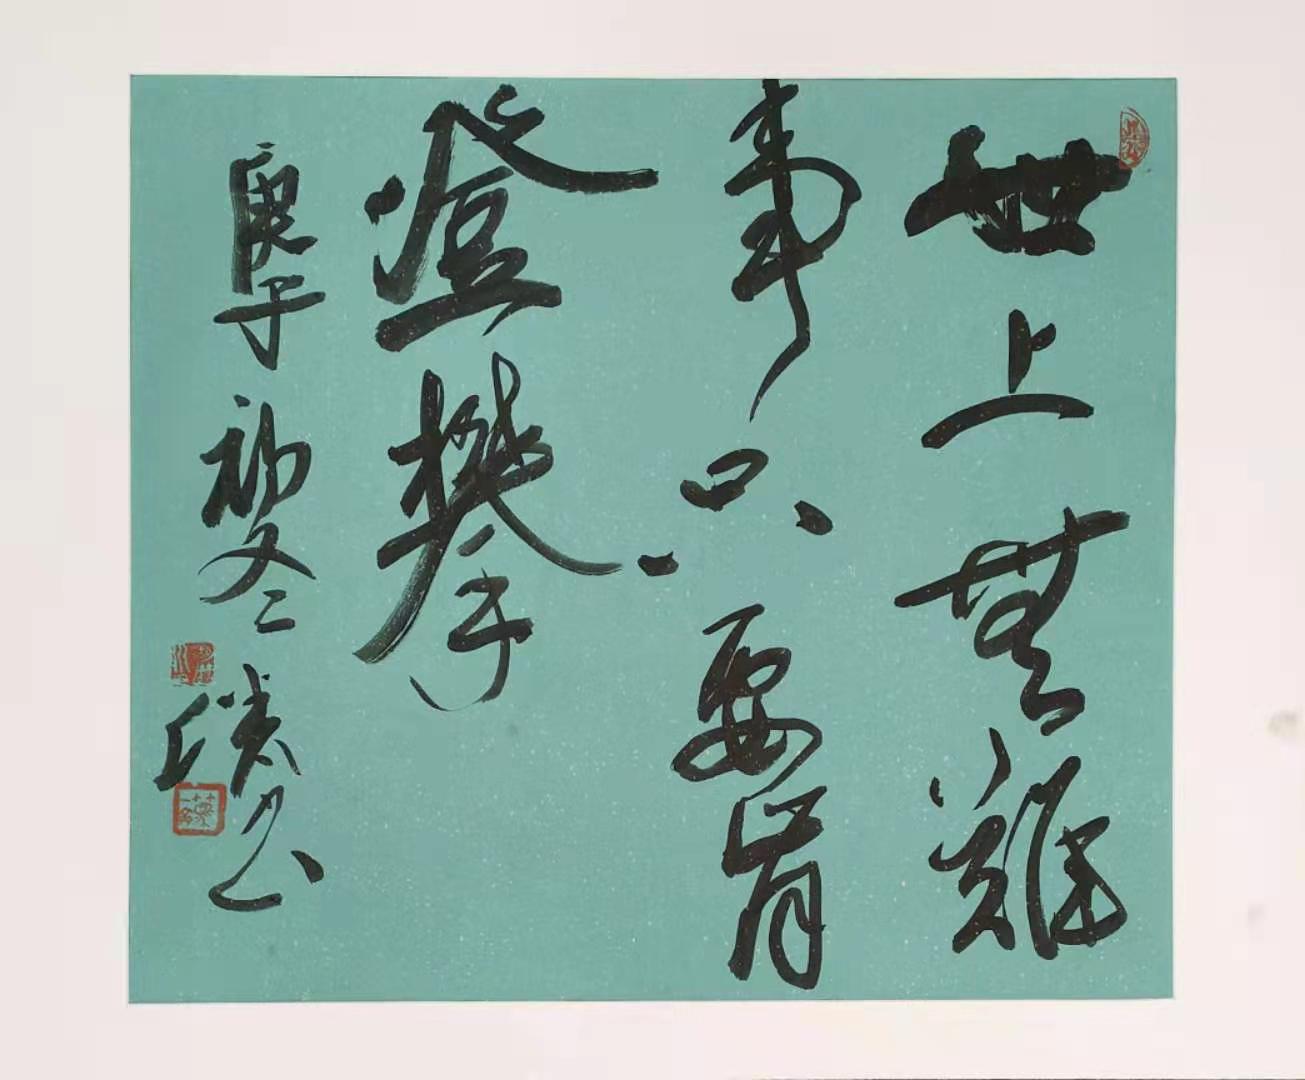 世上無難
事只要肯
登攀
庚子初冬